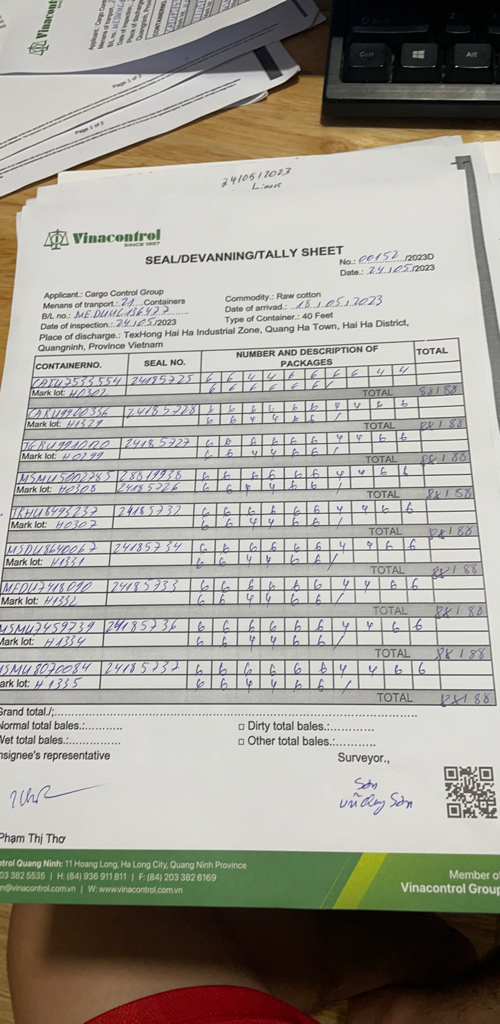 Vinacontrol
Page 1 of 2
Page 1 of 2
Ctrl
Alt
24/05/2023
Vinacontrol
SINCE 1957
SEAL/DEVANNING/TALLY SHEET
No.: 00152 /2023D
Date.: 24/05/2023
Applicant.: Cargo Control Group
Commodity.: Raw cotton
Menans of tranport.: 21 Containers
Date of arrival.: 18/05/2023
B/L no.:
Type of Container.: 40 Feet
Date of inspection.: 24/05/2023
Place of discharge.: TexHong Hai Ha Industrial Zone, Quang Ha Town, Hai Ha District,
Quangninh, Province Vietnam
CONTAINERNO. SEAL NO. NUMBER AND DESCRIPTION OF PACKAGES TOTAL
24185725 6 6 4 4 6 6 6 6 4 4
Mark lot: H0302
TOTAL 88/88
24185728 6 6 6 6 6 6 4 4 6 6
Mark lot: H1329 6 6 4 4 6 6 /
TOTAL 88/88
24185727 6 6 6 6 6 6 4 4 6 6
Mark lot: H0299 6 6 4 4 6 6 /
TOTAL 88/88
MSMU5002785 6 6 6 6 6 6 4 4 6 6
Mark lot: H0308 24185726 6 6 4 4 6 6 /
TOTAL 88/88
TRHU8493237 24185732 6 6 6 6 6 6 4 4 6 6
Mark lot: H0307 6 6 4 4 6 6 /
TOTAL 88/88
MSDU8640067 24185734 6 6 6 6 6 6 4 4 6 6
Mark lot: H1331 6 6 4 4 6 6 /
TOTAL 88/88
MEDU7418090 24185733 6 6 6 6 6 6 4 4 6 6
Mark lot: H1332 6 6 4 4 6 6 /
TOTAL 88/88
MSMU7459739 24185736 6 6 6 6 6 6 4 4 6 6
Mark lot: H1334 6 6 4 4 6 6 /
TOTAL 88/88
SMU8070084 24185737 6 6 6 6 6 6 4 4 6 6
ark lot: H1335 6 6 4 4 6 6 /
TOTAL 88/88
Grand total./:
Normal total bales.:........... □ Dirty total bales.:...........
Wet total bales.:............... □ Other total bales.:...........
nsignee's representative Surveyor.,
Sơn
Phạm Thị Thơ
ntrol Quang Ninh: 11 Hoang Long, Ha Long City, Quang Ninh Province
03 382 5535 | H: (84) 936 911 811 | F: (84) 203 382 6169
n@vinacontrol.com.vn | W: www.vinacontrol.com.vn
Member o
Vinacontrol Group